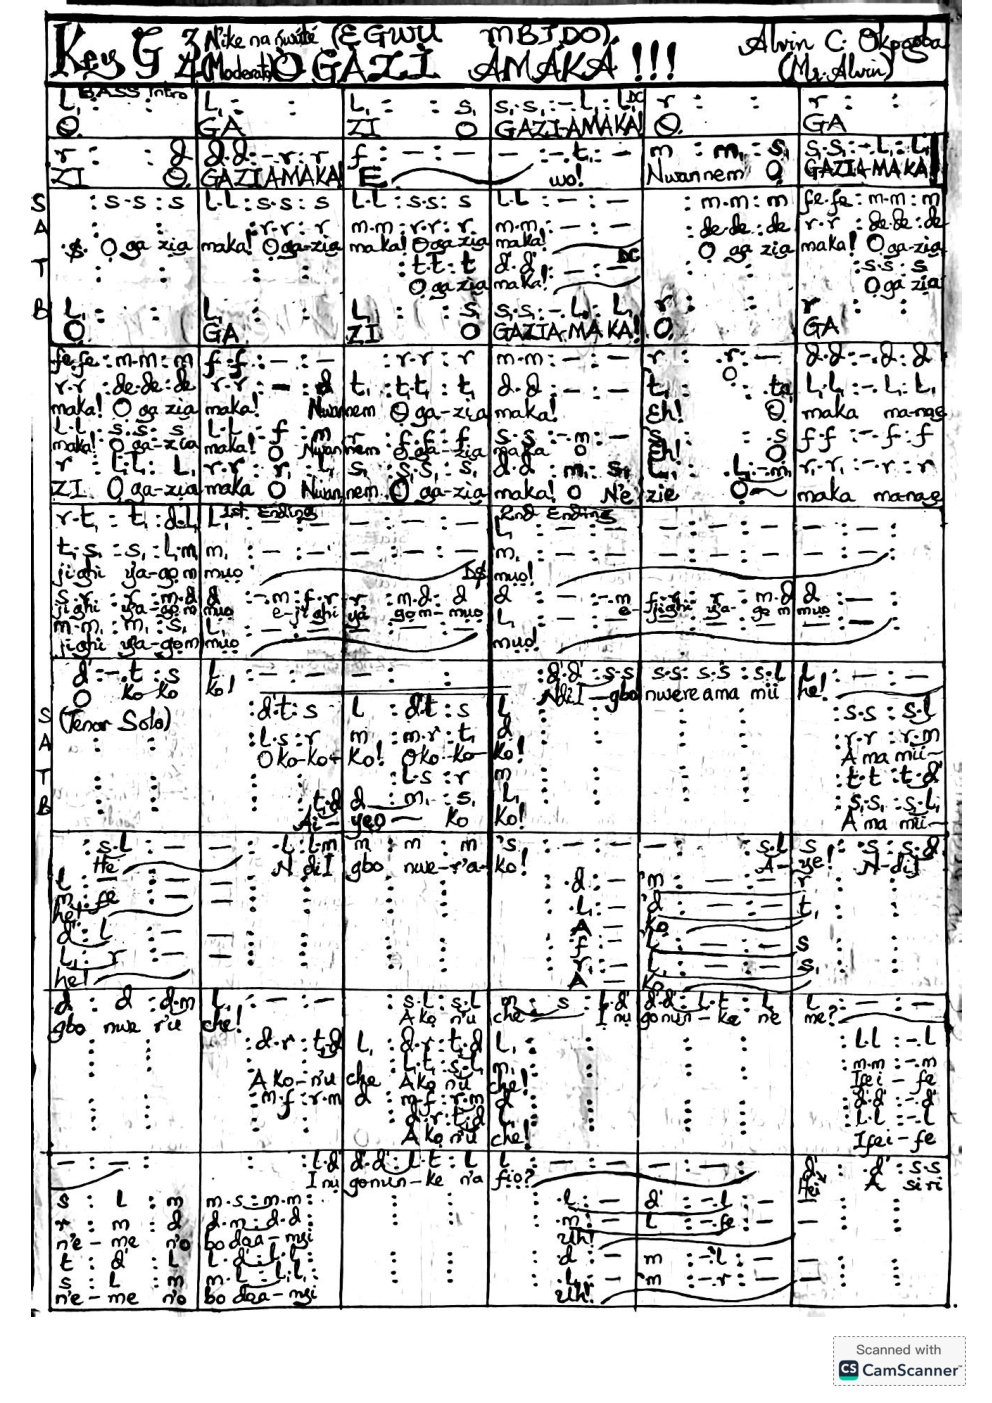 Key G 3/4 (Moderato) N'ike na nwute (EGWU MBIDO) Alvin C. Okpgoba
O GAZI AMAKA !!! (Mr. Alvin)
BASS Intro
L₁ : : L₁ : : L₁ : : s₁ s₁.s₁ : -.L₁ : L₁ DC r : : r : :
O. GA ZI O GAZI-AMAKA! O. GA
r : : d d.d : -.r : r f : - : - - : -.t₁ : - m : m₁ : s₁ s₁.s₁ : -.L₁ : L₁
ZI O. GAZIAMAKA! E wo! Nwannem O GAZIA-MAKA!
S
: s.s : s L.L : s.s : s L.L : s.s : s L.L : - : - : m.m : m fe.fe : m.m : m
A
: r.r : r m.m : r.r : r m.m : - : - : de.de : de r.r : de.de : de
O ga zia maka! Oga-zia maka! Oga zia maka! O ga zia maka! O ga zia
T
: t.t : t d'.d' : - : - DC : s.s : s
O ga zia maka! O ga zia
B
L₁ : : L₁ : : L₁ : : s₁ s₁.s₁ : -.L₁ : L₁ r : : r : :
O. GA ZI O GAZIA-MAKA! O. GA
fe.fe : m.m : m f.f : - : - : r.r : r m.m : - : - r : .r : - d.d : -.d : d
r.r : de.de : de r.r : - : d t₁ : t₁.t₁ : t₁ d.d : - : - t₁ : : ta₁ L₁.L₁ : -.L₁ : L₁
maka! O ga zia maka! Nwannem O ga-zia maka! Eh! O maka ma-nae
L.L : s.s : s L.L : f : m r : f.f : f s.s : -.m : - s : : s f.f : -.f : f
maka! O ga-zia maka! O Nwannem O ga-zia maka O Eh! O
r : L₁.L₁ : L₁ r.r : r : L₁ s₁ : s₁.s₁ : s₁ d.d : m₁ : s₁ L₁ : .L₁ : -.m₁ r₁.r₁ : -.r : r
ZI O ga-zia maka O Nwannem O ga-zia maka! O N'e zie O maka manae
1st Ending 2nd Ending
r.t₁ : t₁ : d.L₁ L₁ : - : - - : - : - L₁ : - : - - : - : - - : - : -
t₁.s₁ : s₁ : L₁.m₁ m₁ : - : - - : - : - m₁ : - : - - : - : - - : - : -
jighi ya-gom muo D$ muo!
s.r : r : m.d d : -.m : f.r r : m.d : d d : - : -.m f.r : r : m.d d : - : -
jighi ya-gom muo e-jighi ya gom-muo e- jighi ya- gom muo
m.m₁ : m₁ : s₁ L₁ : - : - - : - : - L₁ : - : -
jighi ya-gom muo muo!
d' : -.t : s L : - : - - : - : - : d'.d' : s.s s.s : s.s : s.L L : - : -
O Ko-Ko Ko! NdiI-gbo nwere ama mii he!
S (Tenor Solo)
: d'.t : s L : d'.t : s L : s.s : s.L
A
: L.s : r m : m.r : t₁ d : r.r : r.m
O Ko-Ko Ko! O Ko-Ko Ko! A ma mii-
T
: L.s : r m : t.t : t.d'
B
: t₁.d d : m₁ : s₁ L₁ : s₁.s₁ : s₁.L₁
Ai- yeo Ko Ko! A ma mii-
: s.L : - - : .L : L.m m : m : m 's : : : s.L s : .s : s.d
He N diI gbo nwe-r'a- Ko! A- ye! N-diI
L : - : - d : - m : - : - r
m : fe : - L₁ : - d : - : - t₁
he! A Ko
d' : L : - f : - L : - : - s
L₁ : r : - r₁ : - L₁ : - : - s₁
he! A Ko
d : d : d.m L₁ : - : - : s.L : s.L m : s : L.d' d'.d' : L.t : L L : - : -
gbo nwe r'u che! A Ko n'u che I nu gonun-ke ne me?
: d.r : t₁.d L₁ : d.r : t₁.d L₁ : L.L : -.L
: L₁.t₁ : s₁.L₁ m₁ : m.m : -.m
A Ko-n'u che A Ko n'u che! Ifei-fe
: m.f : r.m d : m.f : r.m d : d'.d' : -.d'
: d.r : t₁.d : L.L : -.L
A Ko n'u che! Ifei-fe
- : - : : : L.d' d'.d' : L.t : L L : - : - - : - : - d' : .d' : s.s
I nu gonun-ke n'a fio? Hei A si ri
s : L : m m.s : m.m : .L : - d' : -.L : -
r : m : d d.m : d.d : .m : - L : -.fe : -
n'e-me n'o bo daa-nsi Uh!
t : d' : L L.d' : L.L : .d : - m : -.L : -
s : L : m m.L : L₁.L₁ : .L₁ : - m : -.r : -
n'e-me n'o bo daa-nsi Uh!
Scanned with
CS CamScanner